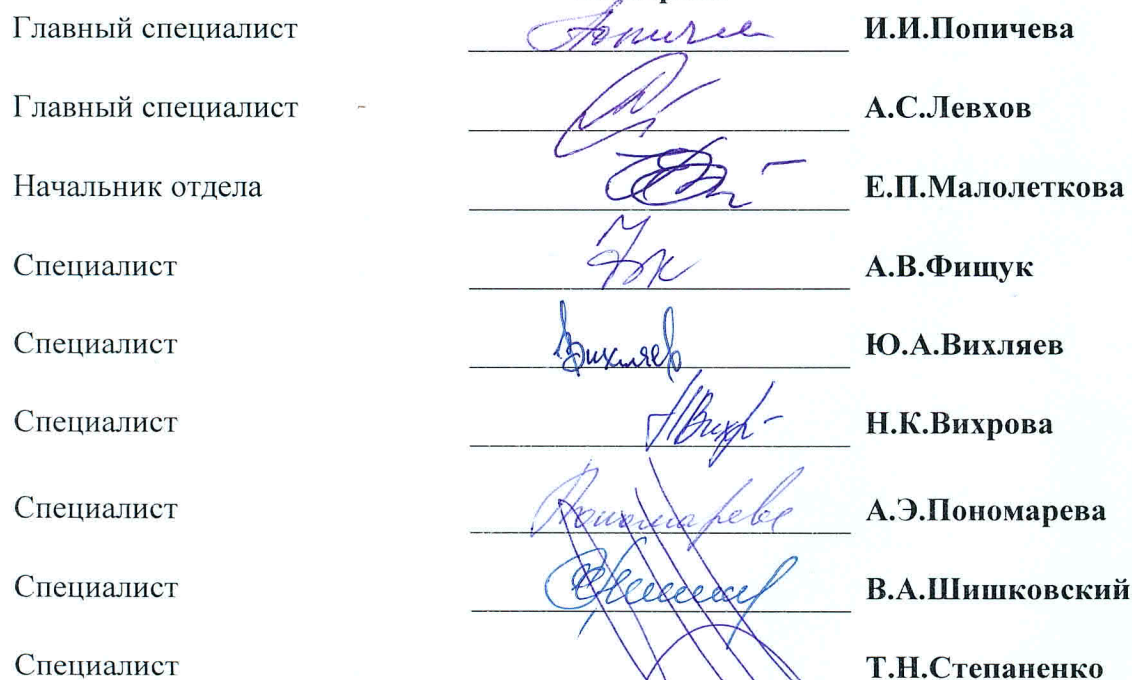 Главный специалист Попичев И.И.Попичева
Главный специалист А.С.Левхов
Начальник отдела Е.П.Малолеткова
Специалист А.В.Фищук
Специалист Вихляев Ю.А.Вихляев
Специалист НВихр Н.К.Вихрова
Специалист Пономарева А.Э.Пономарева
Специалист В.А.Шишковский
Специалист Т.Н.Степаненко